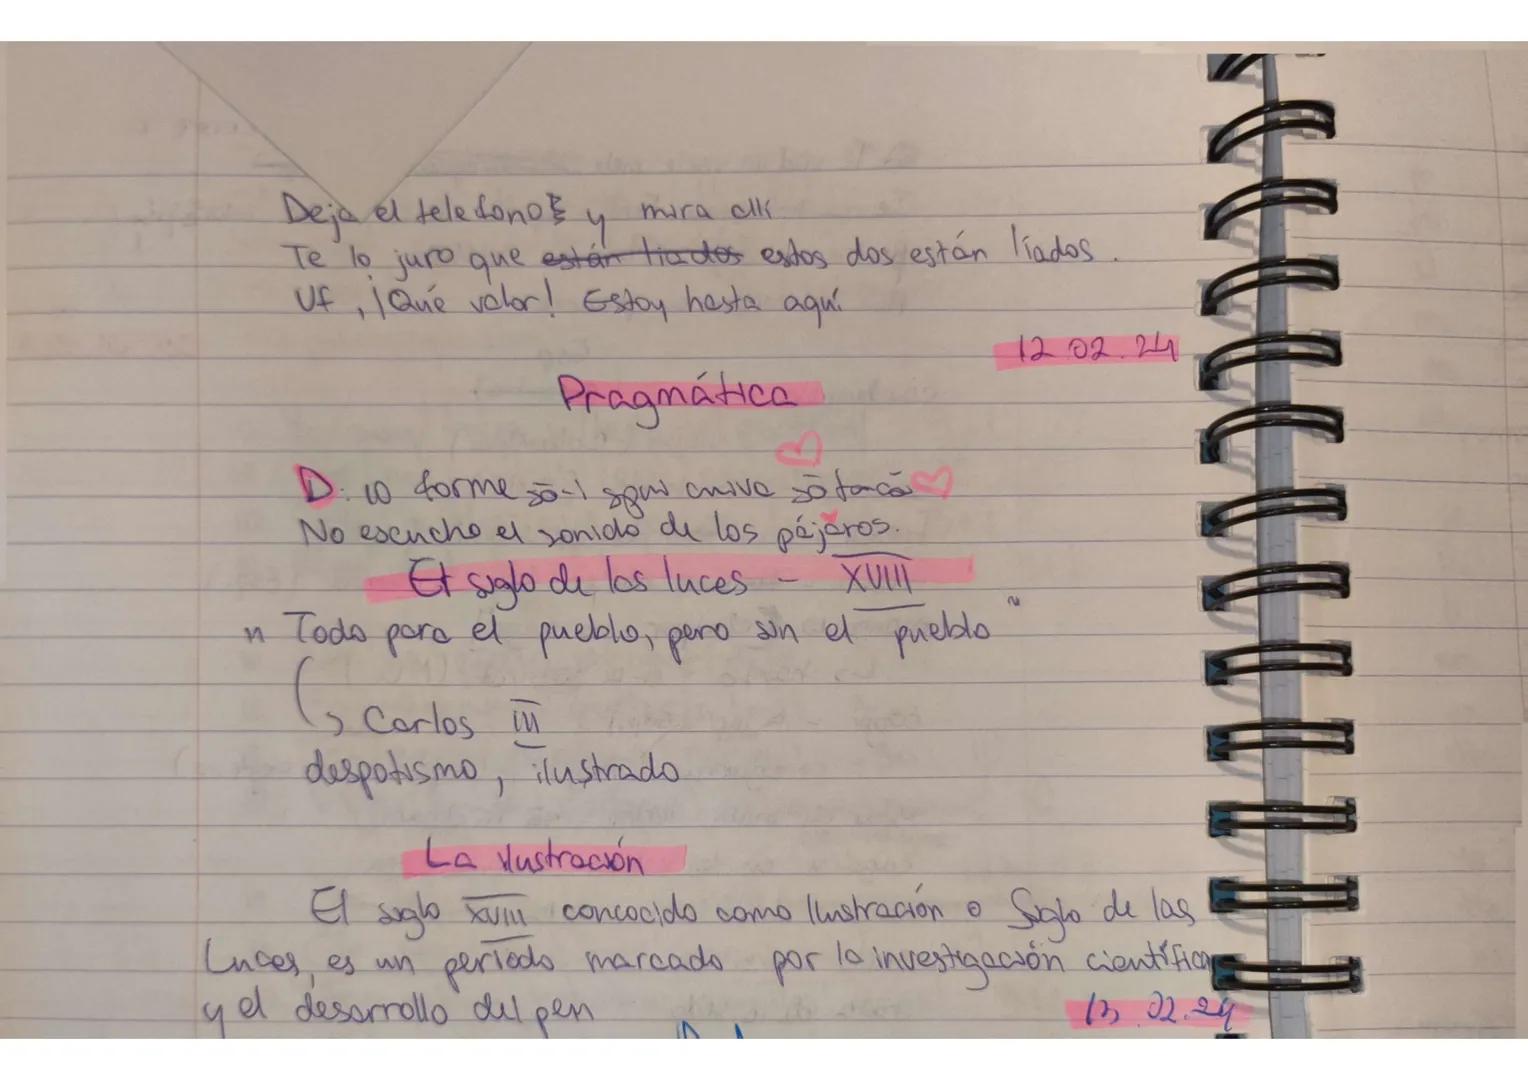 Deja el telefono y mira allí
Te lo juro que están liados estos dos están líados.
Uf, ¡Qué valor! Estoy hasta aquí
12.02.24
Pragmática
D: lo forme
No escucho el sonido de los pájaros.
El siglo de las luces - XVIII
" Todo para el pueblo, pero sin el pueblo "
↳ Carlos III
despotismo, ilustrado
La ilustración
El siglo XVIII concocido como Ilustración o Siglo de las
Luces, es un período marcado por la investigación científica
y el desarrollo del pen
13.02.24